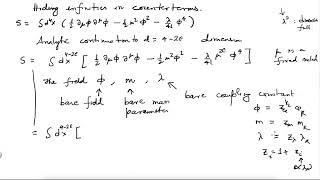 Hiding infinities in counterterms.
S = ∫d⁴x ( ½ ∂μφ ∂^μφ − ½ m²φ² − λ/4! φ⁴ )
λ⁰ : dimension full
Analytic continuation to d = 4−2ε dimension
S = ∫ dx^{4−2ε} [ ½ ∂μφ ∂^μφ − ½ m²φ² − λ/4! μ^{2ε} φ⁴ ]
μ is a fixed scale
the field φ , m , λ
bare field
bare mass parameter
bare coupling constant
φ = z φ_R
m = z_m m_R
λ = z_λ λ_R
z_i = 1 +
= ∫ dx^{4−2ε} [